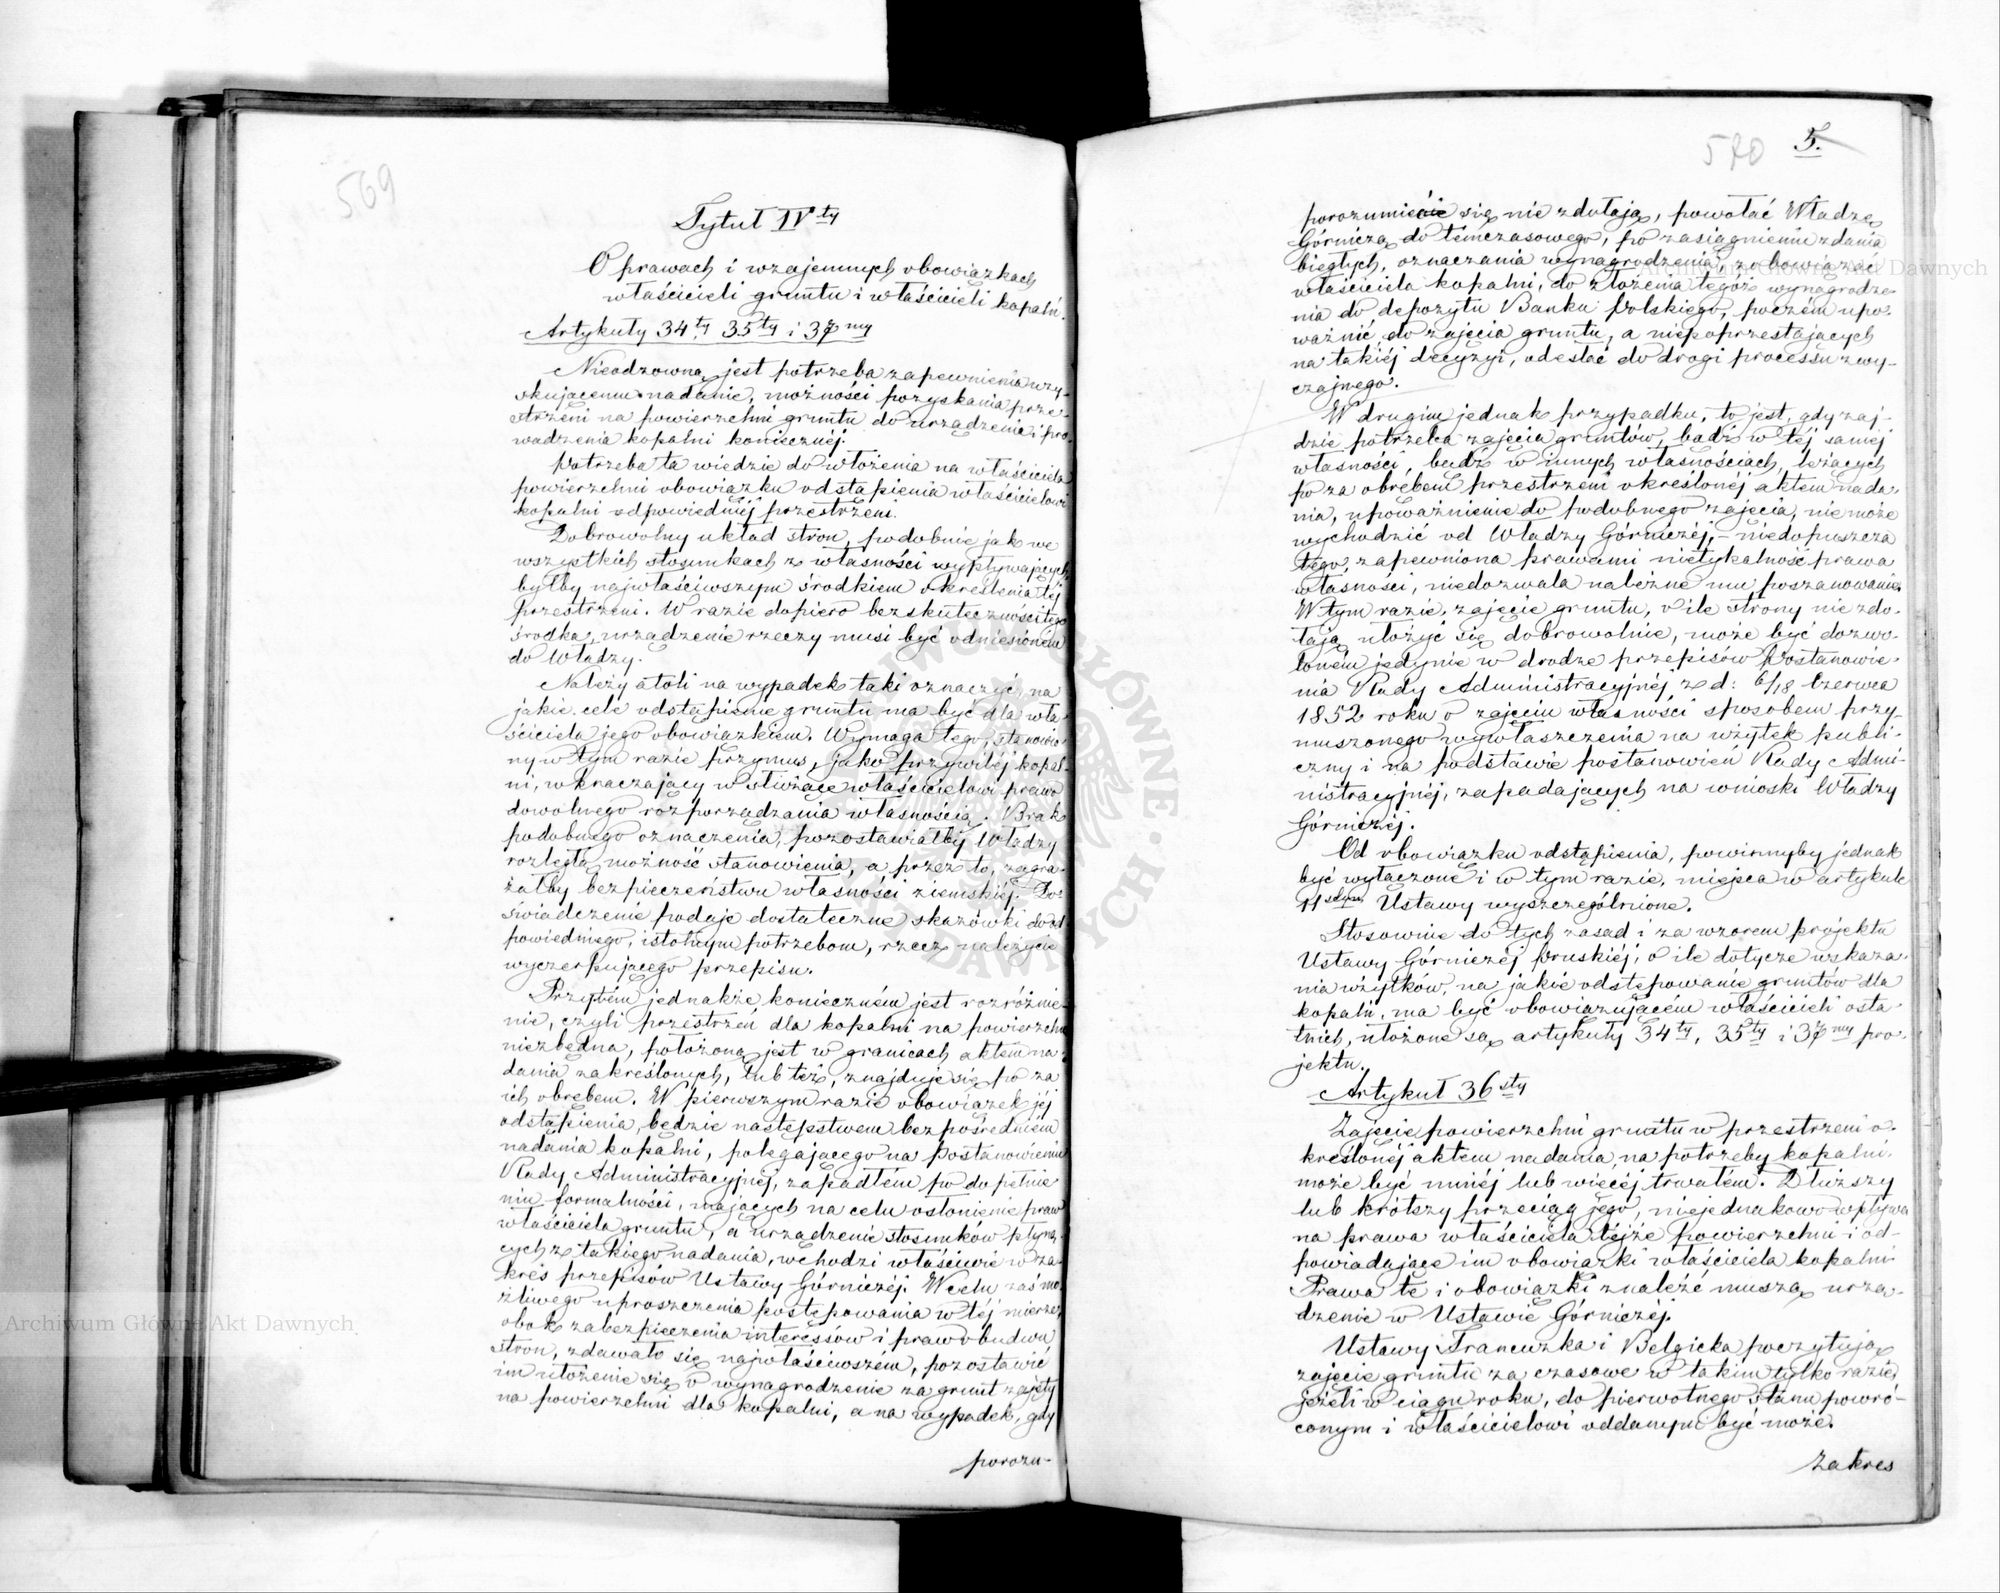 569
Tytuł IV ty
O prawach i wzajemnych obowiązkach
właścicieli gruntu i właścicieli kopalń.
Artykuły 34 ty, 35 ty i 37 my
Nieodzowną jest potrzeba zapewnienia uzy-
skującemu nadanie, możności pozyskania prze-
strzeni na powierzchni gruntu do urządzenia i pro-
wadzenia kopalni koniecznéj.
Potrzeba ta wiedzie do włożenia na właściciela
powierzchni obowiązku odstąpienia właścicielowi
kopalni odpowiedniéj przestrzeni.
Dobrowolny układ stron, podobnie jak we
wszystkich stosunkach z własności wypływających,
byłby najwłaściwszym środkiem określenia téj
przestrzeni. W razie dopiero bezskuteczności tego
środka, urządzenie rzeczy musi być odniesioném
do Władzy.
Należy atoli na wypadek taki oznaczyć, na
jakie cele odstąpienie gruntu ma być dla wła-
ściciela jego obowiązkiem. Wymaga tego, stanowio-
ny w tym razie przymus, jako przywiléj kopal-
ni, wkraczający w służące właścicielowi prawo
dowolnego rozporządzania własnością. Brak
podobnego oznaczenia, pozostawiałby Władzy
rozległą możność stanowienia, a przez to, zagra-
żałby bezpieczeństwu własności ziemskiéj. Do-
świadczenie podaje dostateczne skazówki do od-
powiedniego, istotnym potrzebom, rzecz należycie
wyczerpującego przepisu.
Przytém jednakże, konieczném jest rozróżnie-
nie, czyli przestrzeń dla kopalni na powierzchni
niezbędna, położoną jest w granicach aktem na-
dania zakreślonych, lub też, znajduje się po za
ich obrębem. W pierwszym razie obowiązek jéj
odstąpienia, będzie następstwem bezpośredniém
nadania kopalni, polegającego na Postanowieniu
Rady Administracyjnéj, zapadłém po dopełnie-
niu formalności, mających na celu osłonienie praw
właściciela gruntu, a urządzenie stosunków płyną-
cych z takiego nadania, wchodzi właściwie w za-
kres przepisów Ustawy Górniczéj. W celu zaś mo-
żliwego uproszczenia postępowania w téj mierze,
obok zabezpieczenia interessów i praw obudwu
stron, zdawało się najwłaściwszém, pozostawić
im ułożenie się o wynagrodzenie za grunt zajęty
na powierzchni dla kopalni, a na wypadek, gdy
porozu-
570 5.
porozumieć się nie zdołają, powołać Władzę
Górniczą do tymczasowego, po zasiągnieniu zdania
biegłych, oznaczania wynagrodzenia, zobowiązać
właściciela kopalni, do złożenia tegoż wynagrodze-
nia do depozytu Banku Polskiego, poczém upo-
ważnić do zajęcia gruntu, a niepoprzestających
na takiéj decyzyi, odesłać do drogi processu zwy-
czajnego.
W drugim jednak przypadku, to jest, gdy zaj-
dzie potrzeba zajęcia gruntów, bądź w téj saméj
własności, bądź w innych własnościach, leżących
po za obrębem przestrzeni określonéj aktem nada-
nia, upoważnienie do podobnego zajęcia, nie może
wychodzić od Władzy Górniczéj, – niedopuszcza
tego, zapewniona prawami nietykalność prawa
własności, niedozwala należne mu poszanowanie.
W tym razie, zajęcie gruntu, o ile strony nie zdo-
łają ułożyć się dobrowolnie, może być dozwo-
loném jedynie w drodze przepisów Postanowie-
nia Rady Administracyjnéj z d: 6/18 Czerwca
1852 roku o zajęciu własności sposobem przy-
muszonego wywłaszczenia na użytek publi-
czny i na podstawie postanowień Rady Admi-
nistracyjnéj, zapadających na wnioski Władzy
Górniczéj.
Od obowiązku odstąpienia, powinnyby jednak
być wyłączone i w tym razie, miejsca w artykule
11 Ustawy wyszczególnione.
Stosownie do tych zasad i za wzorem projektu
Ustawy Górniczéj pruskiéj, o ile dotycze wskaza-
nia użytków, na jakie odstępowanie gruntów dla
kopalń, ma być obowiązującém właścicieli osta-
tnich, ułożone są artykuły 34 ty, 35 ty i 37 my pro-
jektu.
Artykuł 36 sty
Zajęcie powierzchni gruntu w przestrzeni o-
kreślonéj aktem nadania, na potrzeby kopalni,
może być mniéj lub więcéj trwałém. Dłuższy
lub krótszy przeciąg jego, niejednakowo wpływa
na prawa właściciela tejże powierzchni i od-
powiadające im obowiązki właściciela kopalni.
Prawa te i obowiązki znaleźć muszą urzą-
dzenie w Ustawie Górniczéj.
Ustawy Francuzka i Belgicka poczytują
zajęcie gruntu za czasowe w takim tylko razie,
jeżeli w ciągu roku, do pierwotnego stanu powró-
conym i właścicielowi oddanym być może.
Zakres
Archiwum Główne Akt Dawnych
Archiwum Główne Akt Dawnych